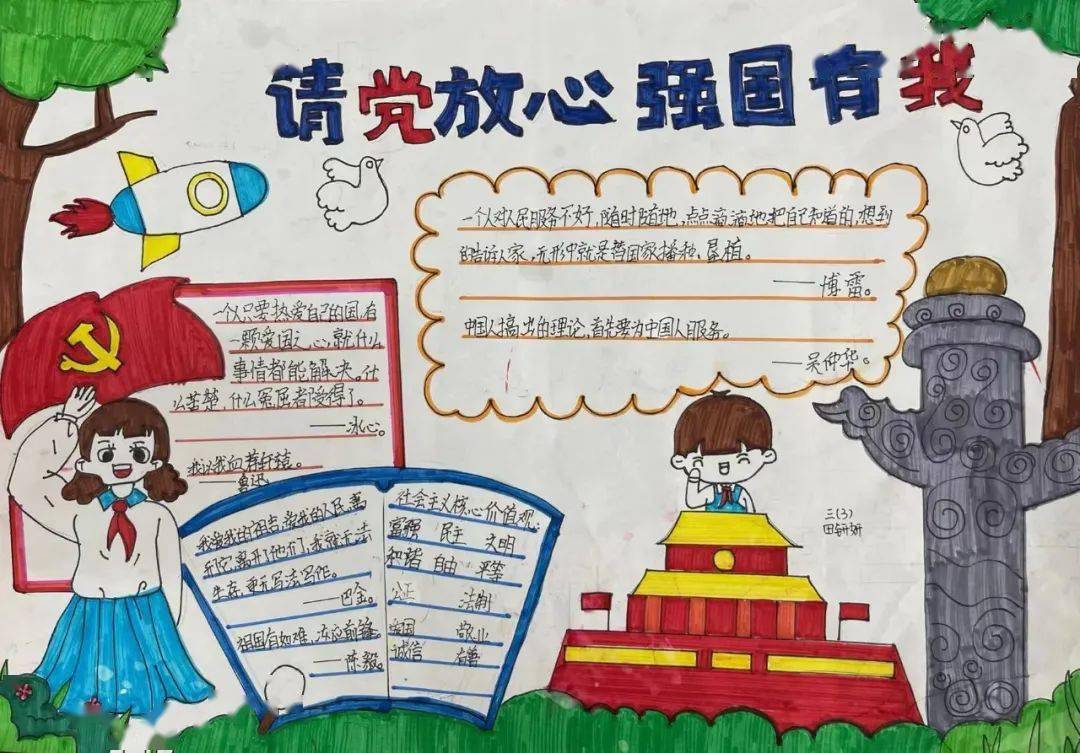 请党放心 强国有我
一个人对人民服务不好,随时随地,点点滴滴地把自己知道的,想到
的告诉人家,无形中就是替国家播种、垦植。
——博雷。
中国人搞出的理论,首先要为中国人服务。
——吴仲华。
一个人只要热爱自己的国,有
一颗爱国之心,就什么
事情都能解决。什
么苦楚,什么冤屈都受得了。
——冰心。
我以我血荐轩辕。
——鲁迅
我爱我的祖国,爱我的人民,离
开它,离开了他们,我就无法
生存,更无写法写作。
——巴金。
祖国有如难,冻应前锋。
——陈毅。
社会主义核心价值观:
富强 民主 文明
和谐 自由 平等
公正 法制
爱国 敬业
诚信 友善
三(3)
田妍妍